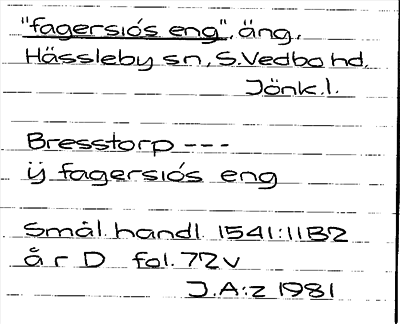 "fagersiós eng", äng,
Hässleby sn, S.Vedbo hd,
Jönk.l.
Bresstorp ---
ÿ fagersiós eng
Smål. handl. 1541:11B2
år D fol. 72v
J.A:z 1981